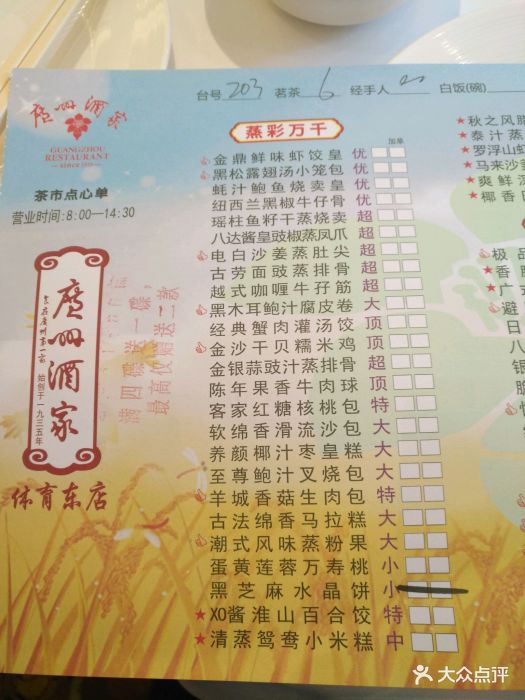 台号 203 茗茶 6 经手人 白饭(碗)
廣州酒家
GUANGZHOU
RESTAURANT
SINCE 1935
茶市点心单
营业时间:8:00—14:30
廣州酒家
食在廣州第一家
始创于一九三五年
体育东店
满四碟送一碟
最高仅赠送二款
蒸彩万千
加单
金鼎鲜味虾饺皇 优
黑松露翅汤小笼包 优
蚝汁鲍鱼烧卖皇 优
纽西兰黑椒牛仔骨 优
瑶柱鱼籽干蒸烧卖 超
八达酱皇豉椒蒸凤爪 超
电白沙姜蒸肚尖 超
古劳面豉蒸排骨 超
越式咖喱牛孖筋 超
黑木耳鲍汁腐皮卷 大
经典蟹肉灌汤饺 顶
金沙干贝糯米鸡 顶
金银蒜豉汁蒸排骨 超
陈年果香牛肉球 顶
客家红糖核桃包 特
软绵香滑流沙包 大
养颜椰汁枣皇糕 大
至尊鲍汁叉烧包 大
羊城香菇生肉包 特
古法绵香马拉糕 大
潮式风味蒸粉果 大
蛋黄莲蓉万寿桃 小
黑芝麻水晶饼 小
★XO酱淮山百合饺 特
★清蒸鸳鸯小米糕 中
★秋之风腊
★泰汁蒸
★罗浮山虾
★马来沙
★爽鲜
★椰香
极品
★香
★广式
避
日
八
银
脆
大众点评